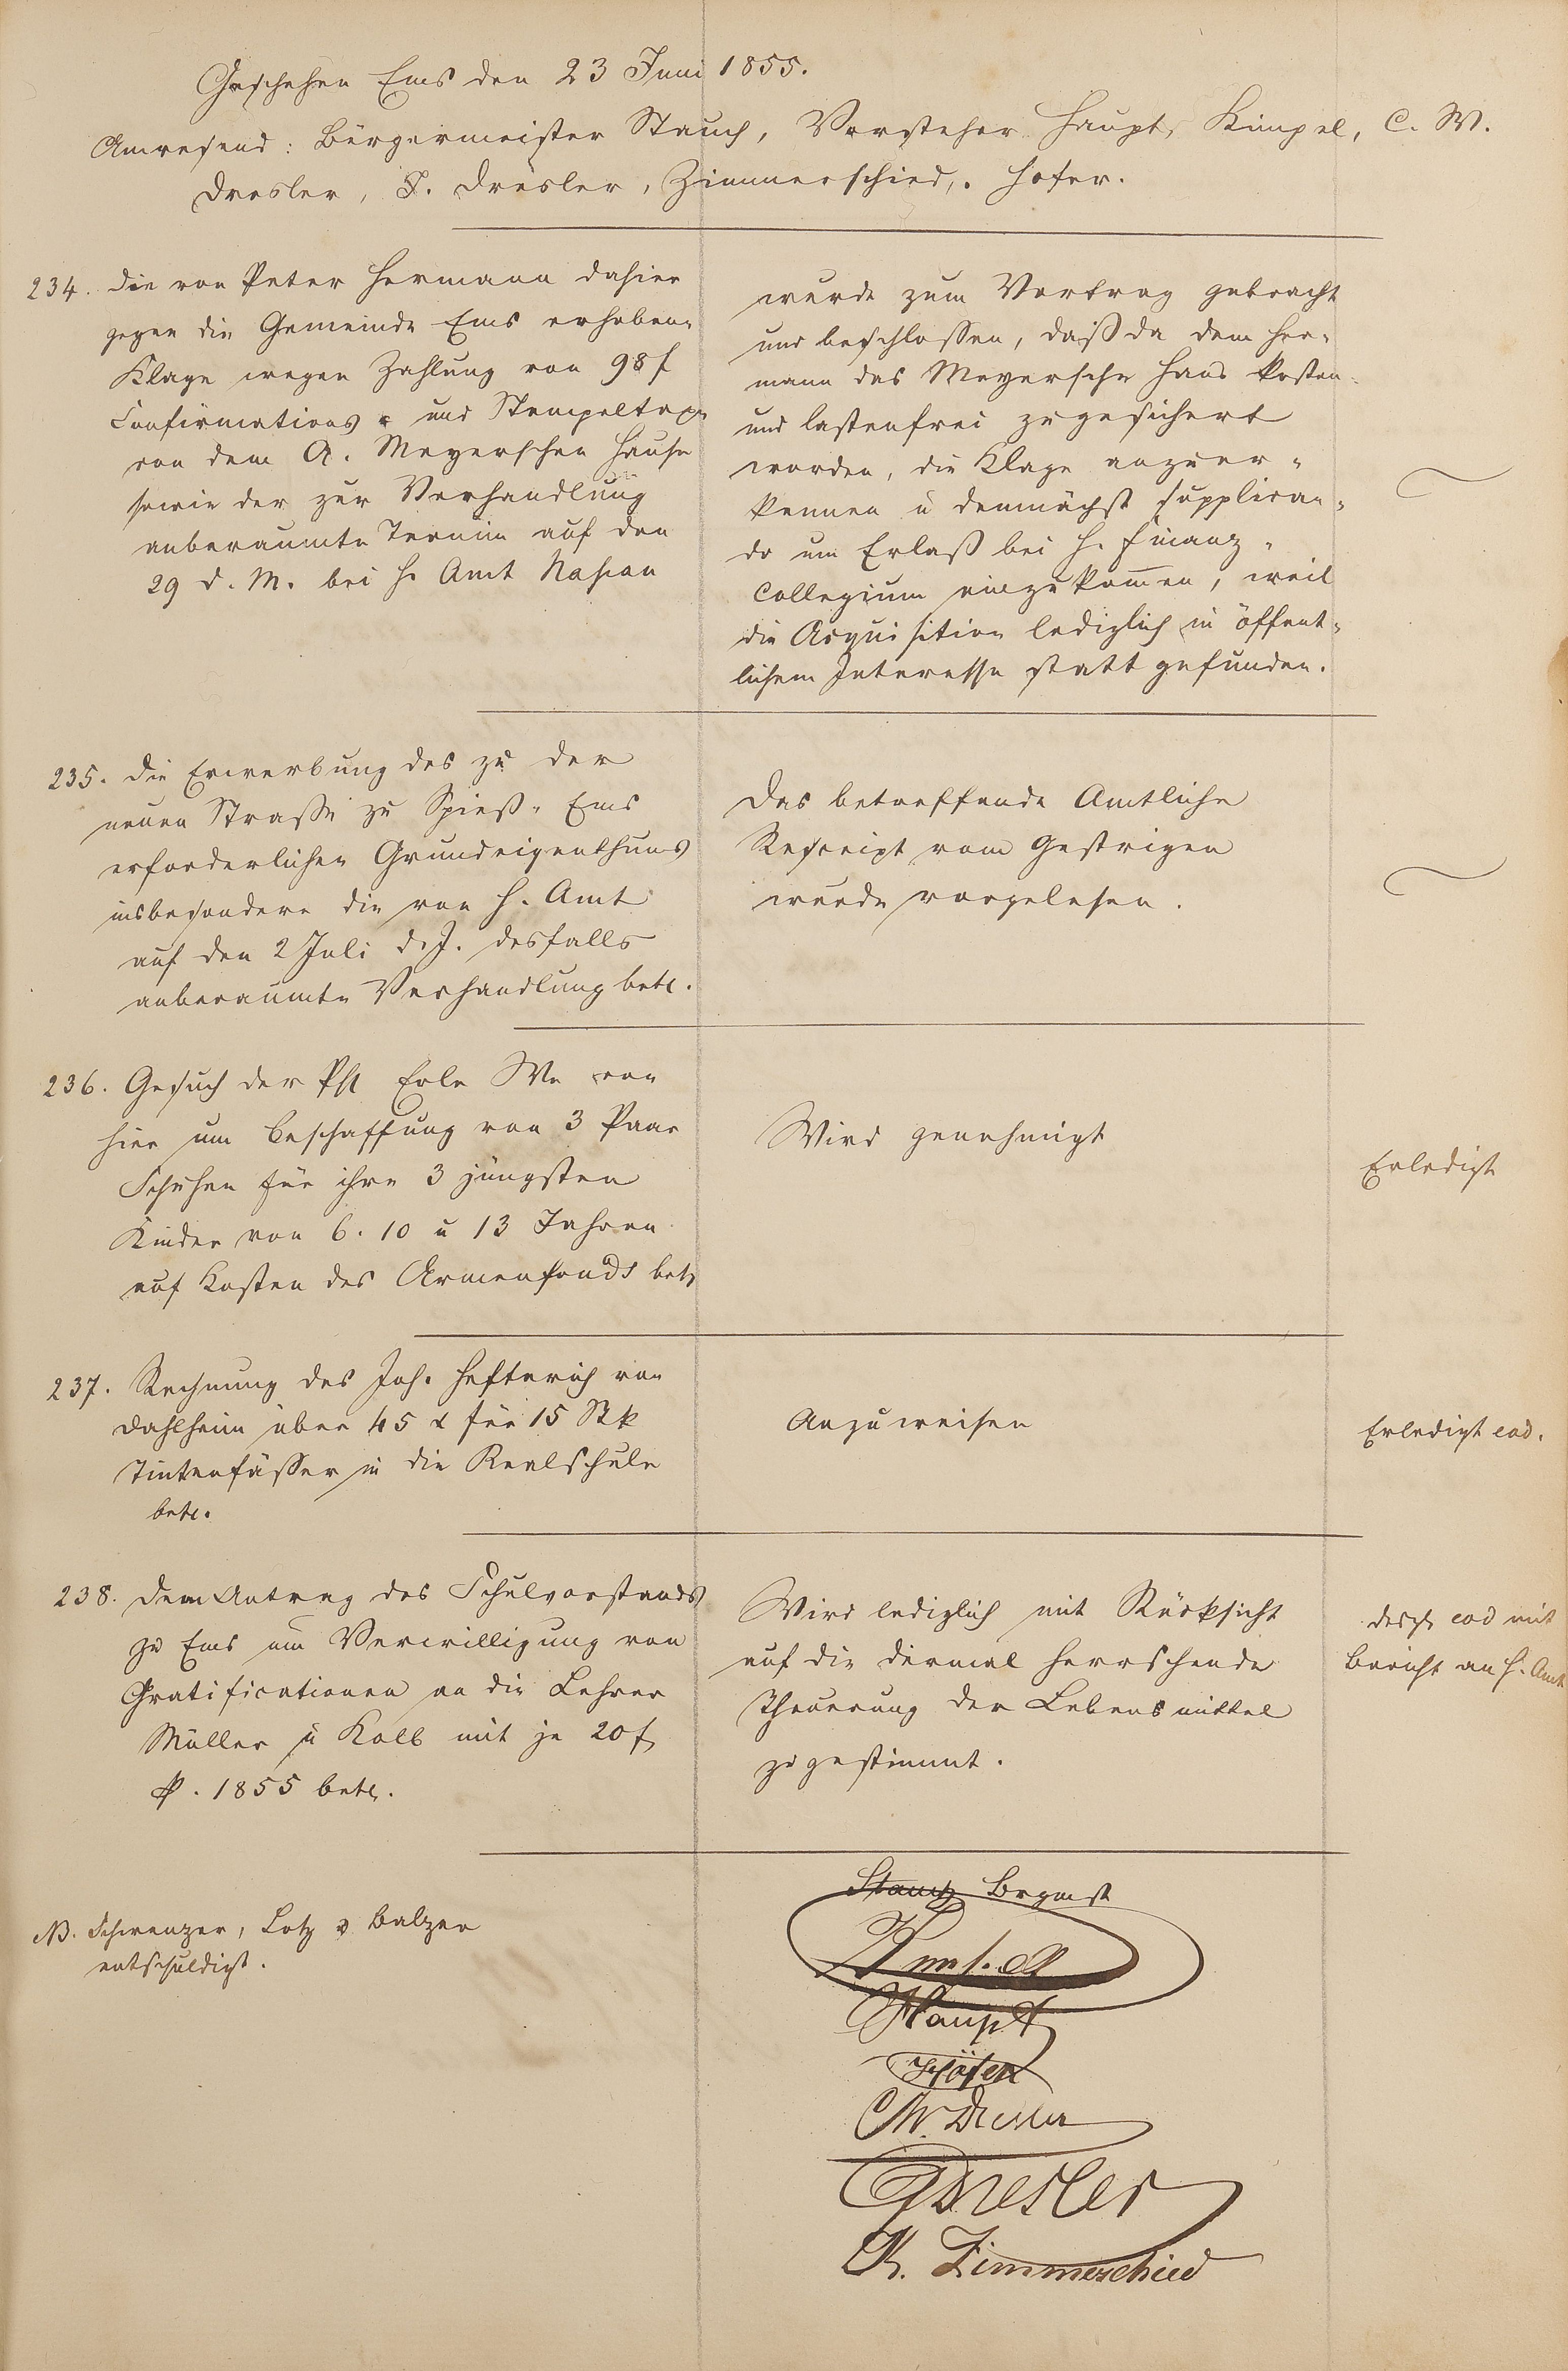 Geschehen Ems den 23 Juni 1855.
Anwesend: Bürgermeister Stauch, Vorsteher Haupt, Kimpel, C. W.
Dresler, J. Dresler, Zimmerschied, Hofer.
234. Die von Peter Hermann dahier
gegen die Gemeinde Ems erhobene
Klage wegen Zahlung von 98 f
Confirmations- und Stempeltaxe
von dem A. Meyerschen Hause
sowie der zur Verhandlung
anberaumte Termin auf den
29 d. M. bei H. Amt Nassau
wurde zum Vortrag gebracht
und beschlossen, daß da dem Her-
mann das Meyersche Haus kosten-
und lastenfrei zugesichert
worden, die Klage anzuer-
kennen u demnächst supplican-
do um Erlaß bei H. Finanz-
Collegium einzukommen, weil
die Acquisition lediglich in öffent-
lichem Interesse statt gefunden.
235. Die Erwerbung des zu der
neuen Straße zu Spieß-Ems
erforderlichen Grundeigenthums
insbesondere die von H. Amt
auf den 2 Juli d. J. desfalls
anberaumte Verhandlung betr.
Das betreffende Amtliche
Rescript vom Gestrigen
wurde vorgelesen.
236. Gesuch der Phl We von
hier um Beschaffung von 3 Paar
Schuhen für ihre 3 jüngsten
Kinder von 6. 10 u 13 Jahren
auf Kosten des Armenfonds betr
Wird genehmigt
Erledigt
237. Rechnung des Joh. Hefterich von
Dahlheim über 45 x für 15 Stk
Tintenfässer in die Realschule
betr.
Anzuweisen
Erledigt eod.
238. Dem Antrag des Schulvorstands
zu Ems um Verwilligung von
Gratificationen an die Lehrer
Müller u Kolb mit je 20 f
p. 1855 betr.
Wird lediglich mit Rücksicht
auf die dermal herrschende
Theuerung der Lebensmittel
zugestimmt.
desgl eod mit
Bericht an H. Amt
NB. Schwenzer, Lotz & Balzer
entschuldigt.
Stauch Brgmst
Haupt
Höfer
C W. Dresler
J Dresler
K. Zimmerschied